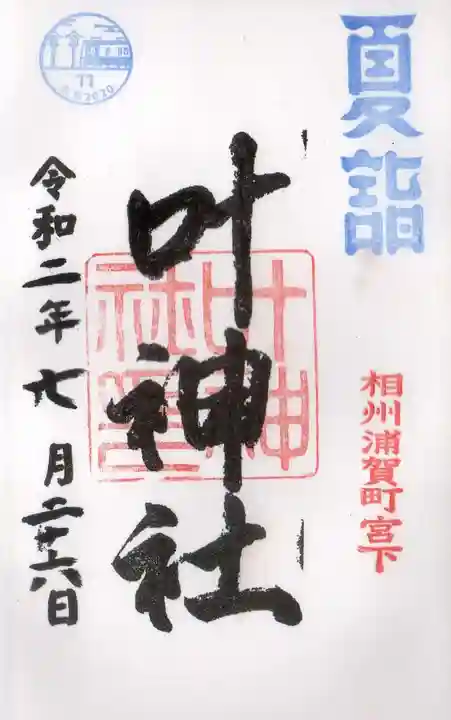 夏詣
相州浦賀町宮下
叶神社
叶神社印
令和二年七月二十六日
11
2020